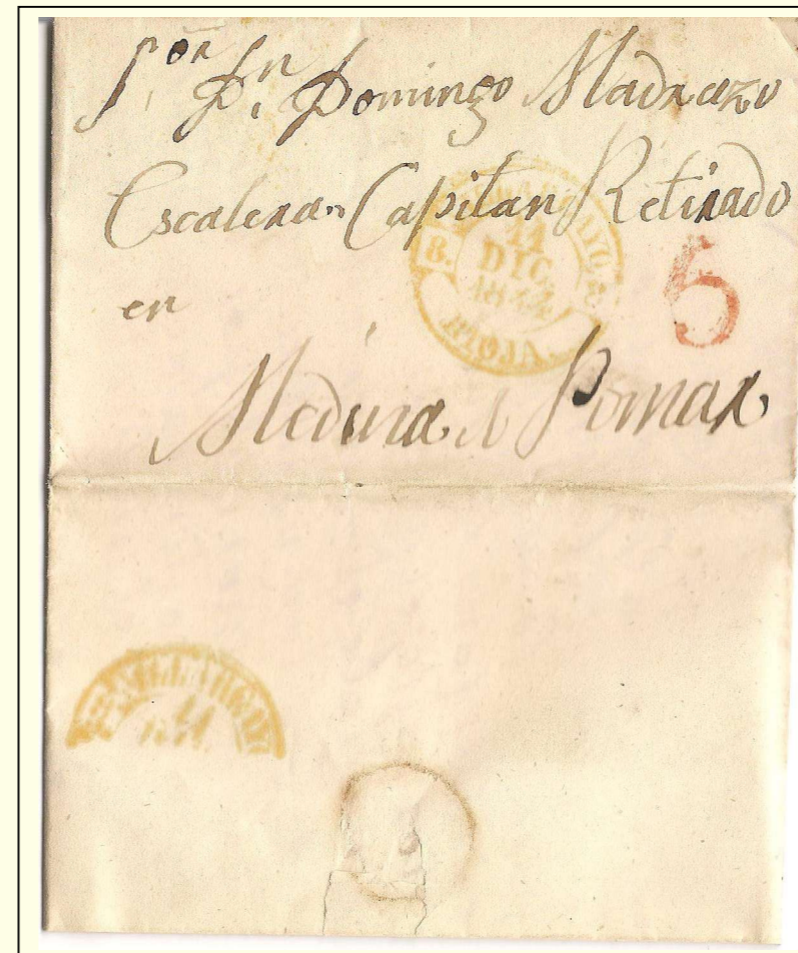 S.or D.n Domingo Madrazo
Escalera Capitan Retirado
en
Medina de Pomar
8.
11
DIC.
1844
RIOJA.
5
11